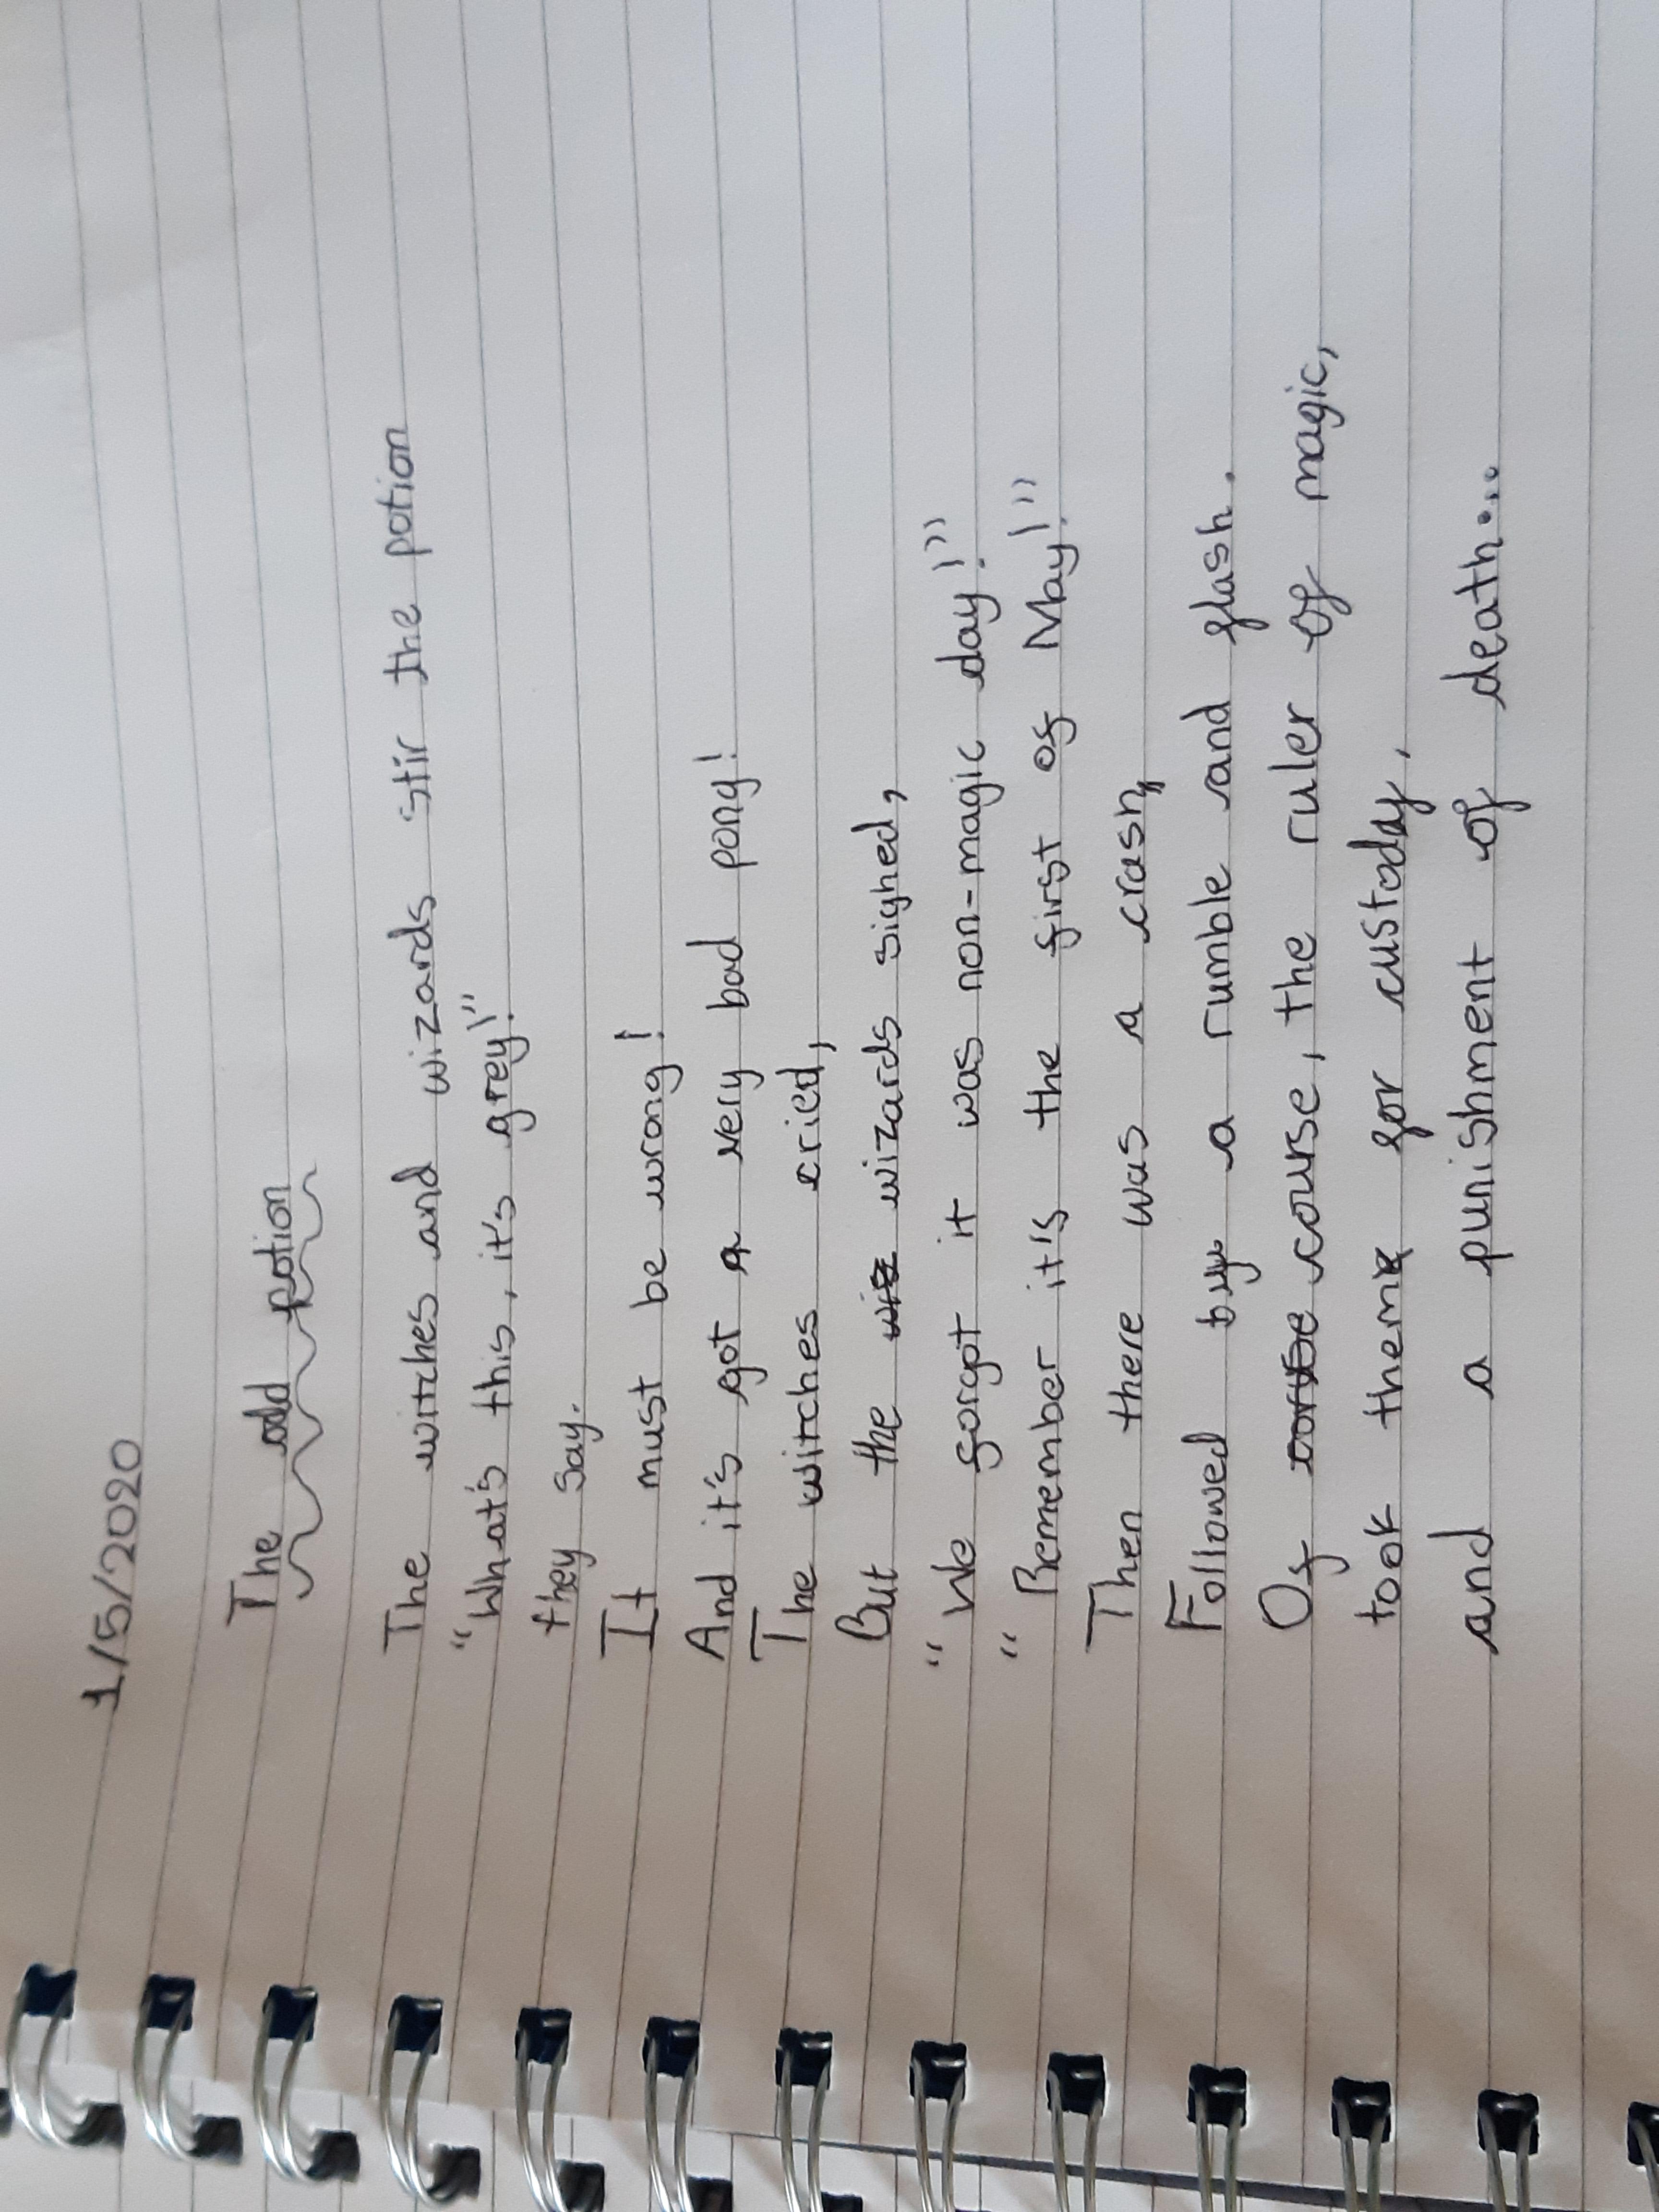 1/5/2020
The odd Potion
The witches and wizards stir the potion
"What's this, it's grey!"
they say.
It must be wrong!
And it's got a very bad pong!
The witches cried,
But the wizards sighed,
"We forgot it was non-magic day!"
"Remember it's the first of May!"
Then there was a crash,
Followed by a rumble and flash.
Of course, the ruler of magic,
took them for custody,
and a punishment of death...